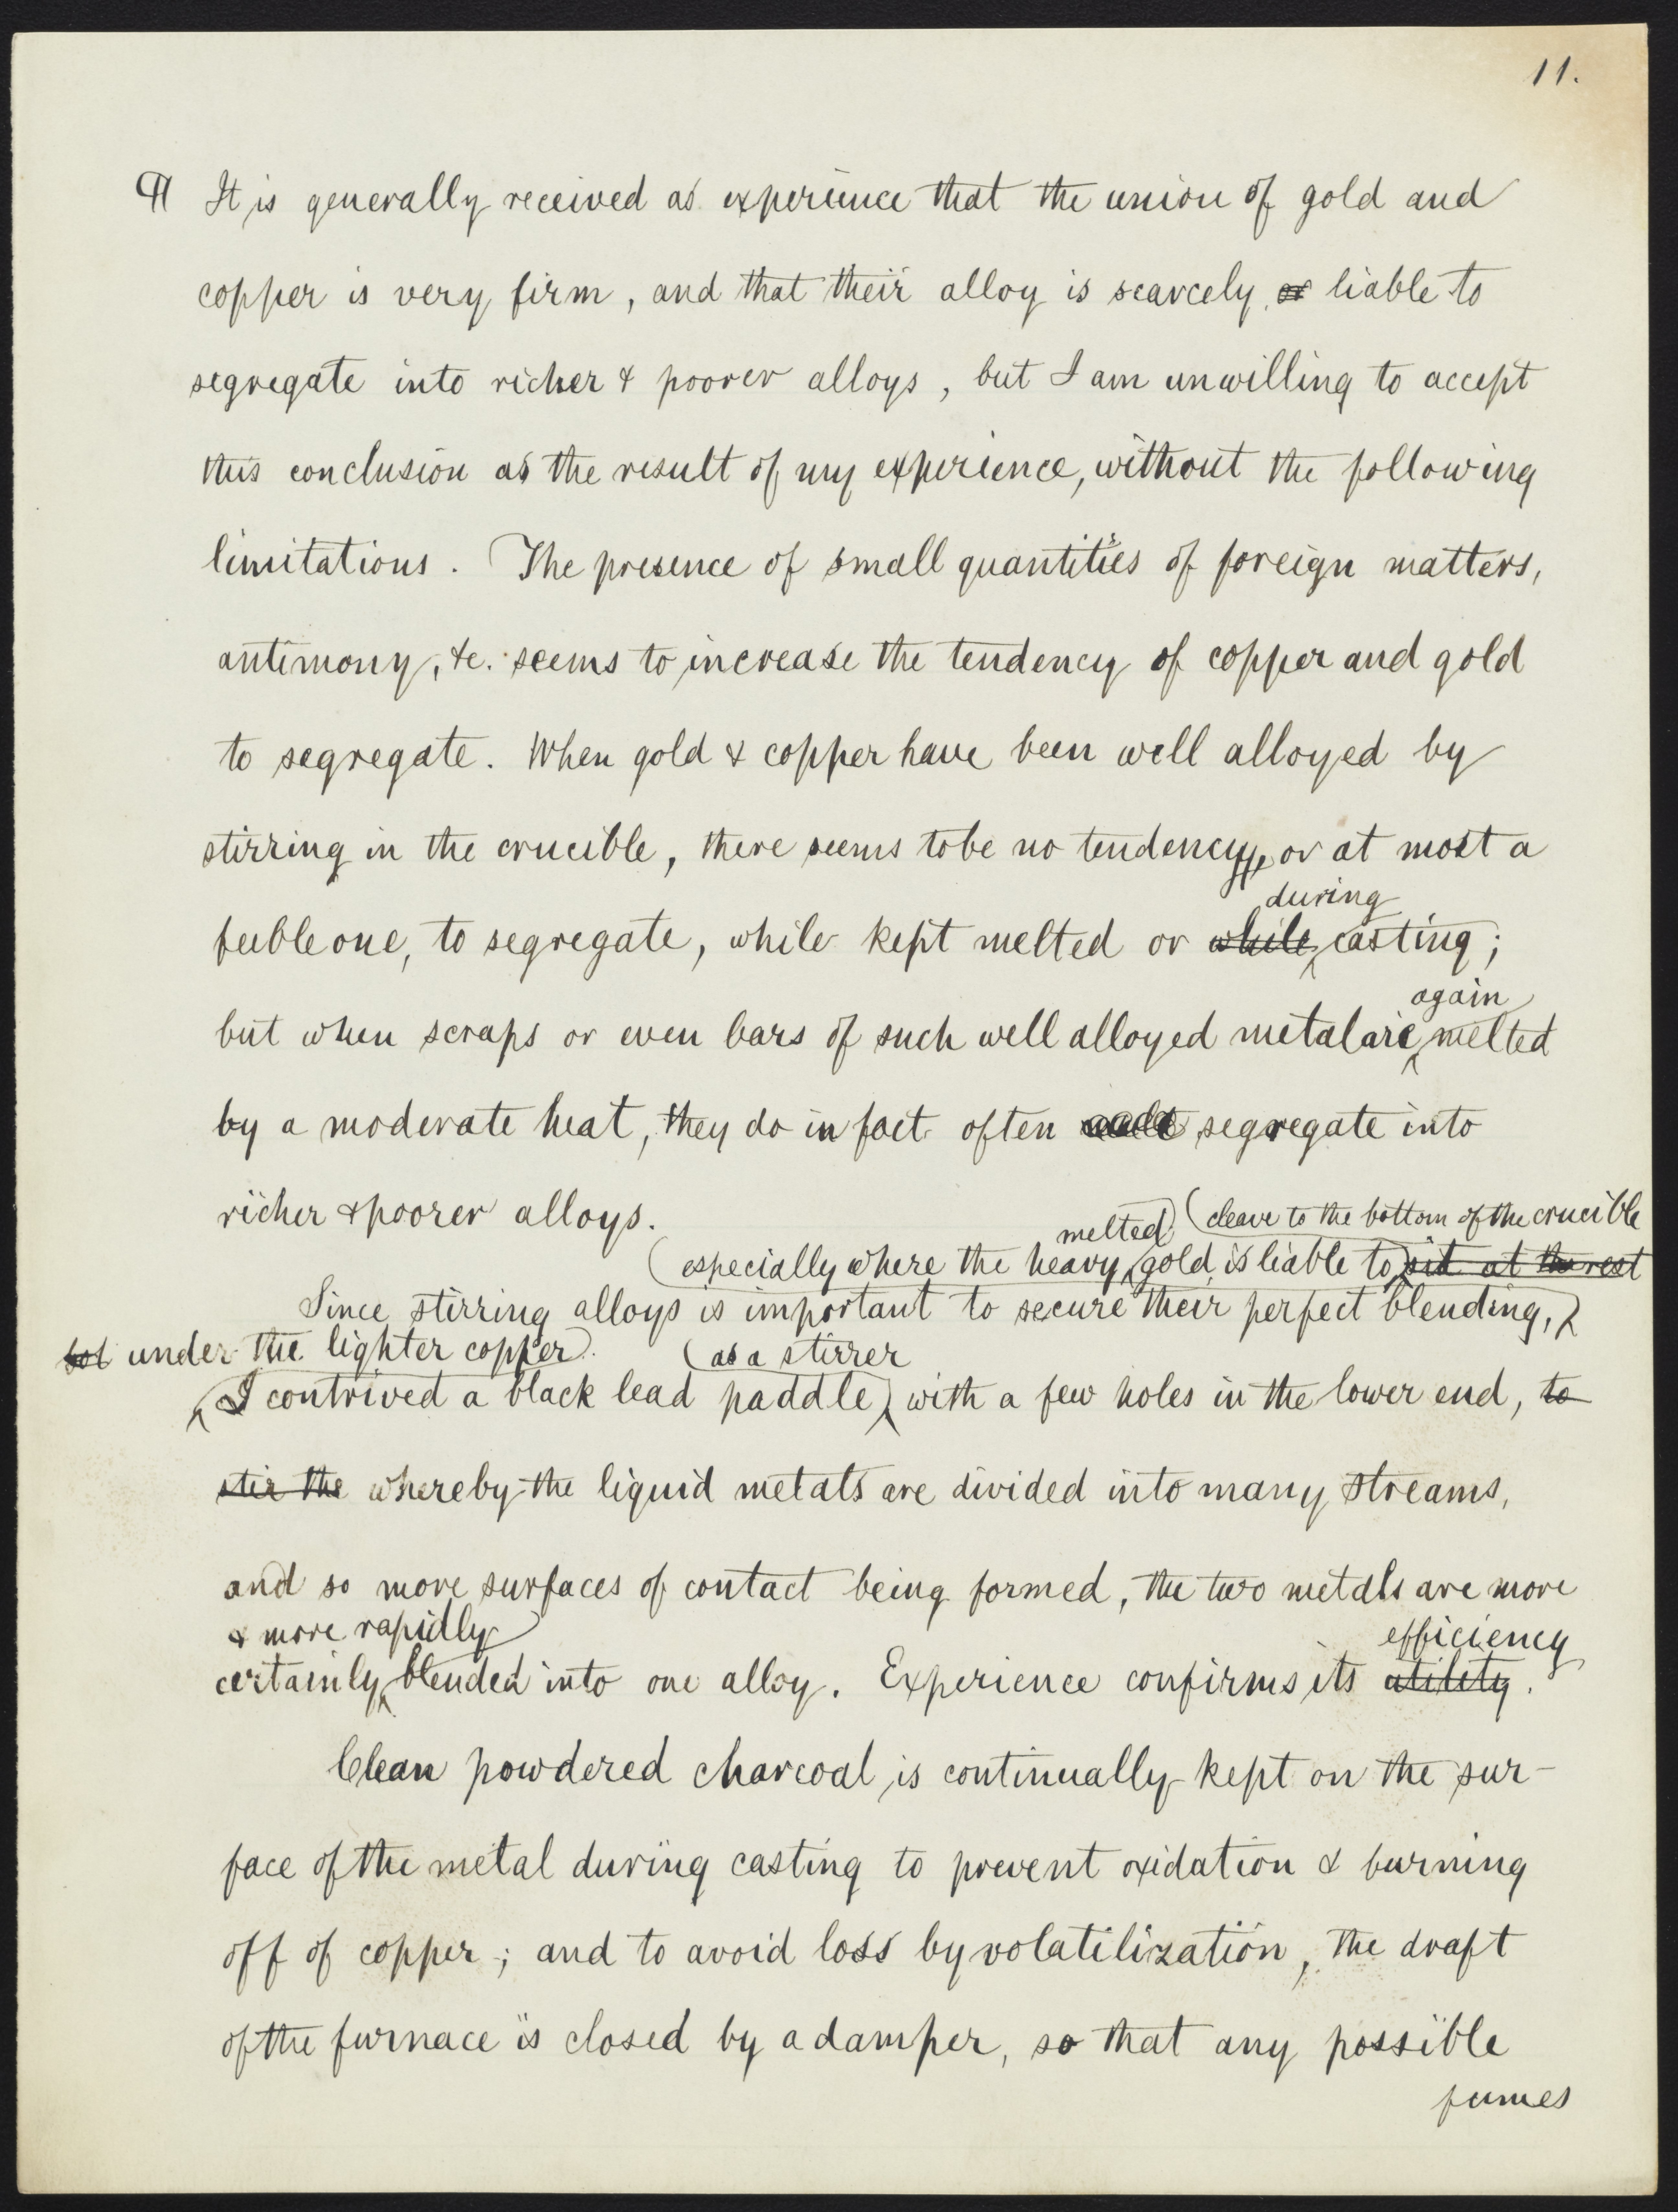 11.
¶ It is generally received as experience that the union of gold and
copper is very firm, and that their alloy is scarcely or liable to
segregate into richer & poorer alloys, but I am unwilling to accept
this conclusion as the result of my experience, without the following
limitations. The presence of small quantities of foreign matters,
antimony, &c. seems to increase the tendency of copper and gold
to segregate. When gold & copper have been well alloyed by
stirring in the crucible, there seems to be no tendency, or at most a
during
feeble one, to segregate, while kept melted or while casting;
again
but when scraps or even bars of such well alloyed metal are melted
by a moderate heat, they do in fact often segregate into
richer & poorer alloys.
melted (cleave to the bottom of the crucible
(especially where the heavy gold is liable to sit at the rest
Since stirring alloys is important to secure their perfect blending,
under the lighter copper).
(as a stirrer
I contrived a black lead paddle) with a few holes in the lower end, to
stir the whereby the liquid metals are divided into many streams,
and so more surfaces of contact being formed, the two metals are more
& more rapidly
efficiency
certainly blended into one alloy. Experience confirms its utility.
Clean powdered charcoal is continually kept on the sur-
face of the metal during casting to prevent oxidation & burning
off of copper; and to avoid loss by volatilization, the draft
of the furnace is closed by a damper, so that any possible
fumes